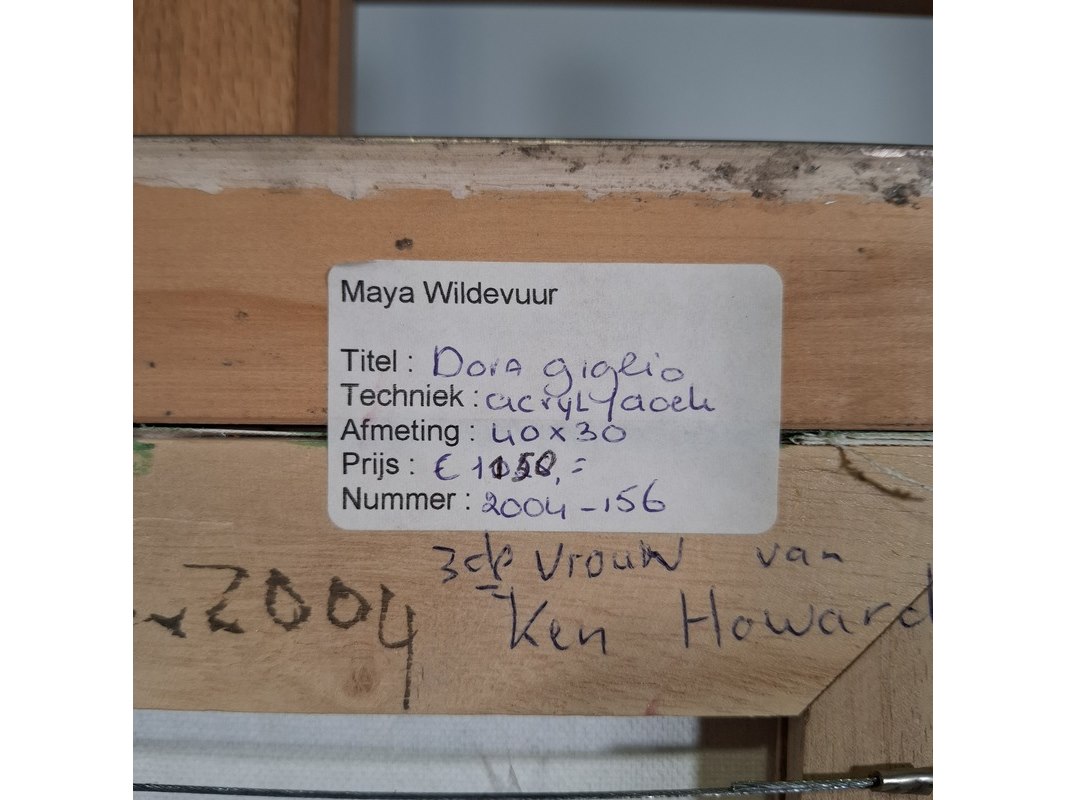 Maya Wildevuur
Titel : Dora giglio
Techniek : acryl/doek
Afmeting : 40x30
Prijs : € 1150,=
Nummer : 2004-156
3de vrouw van
2004 Ken Howard